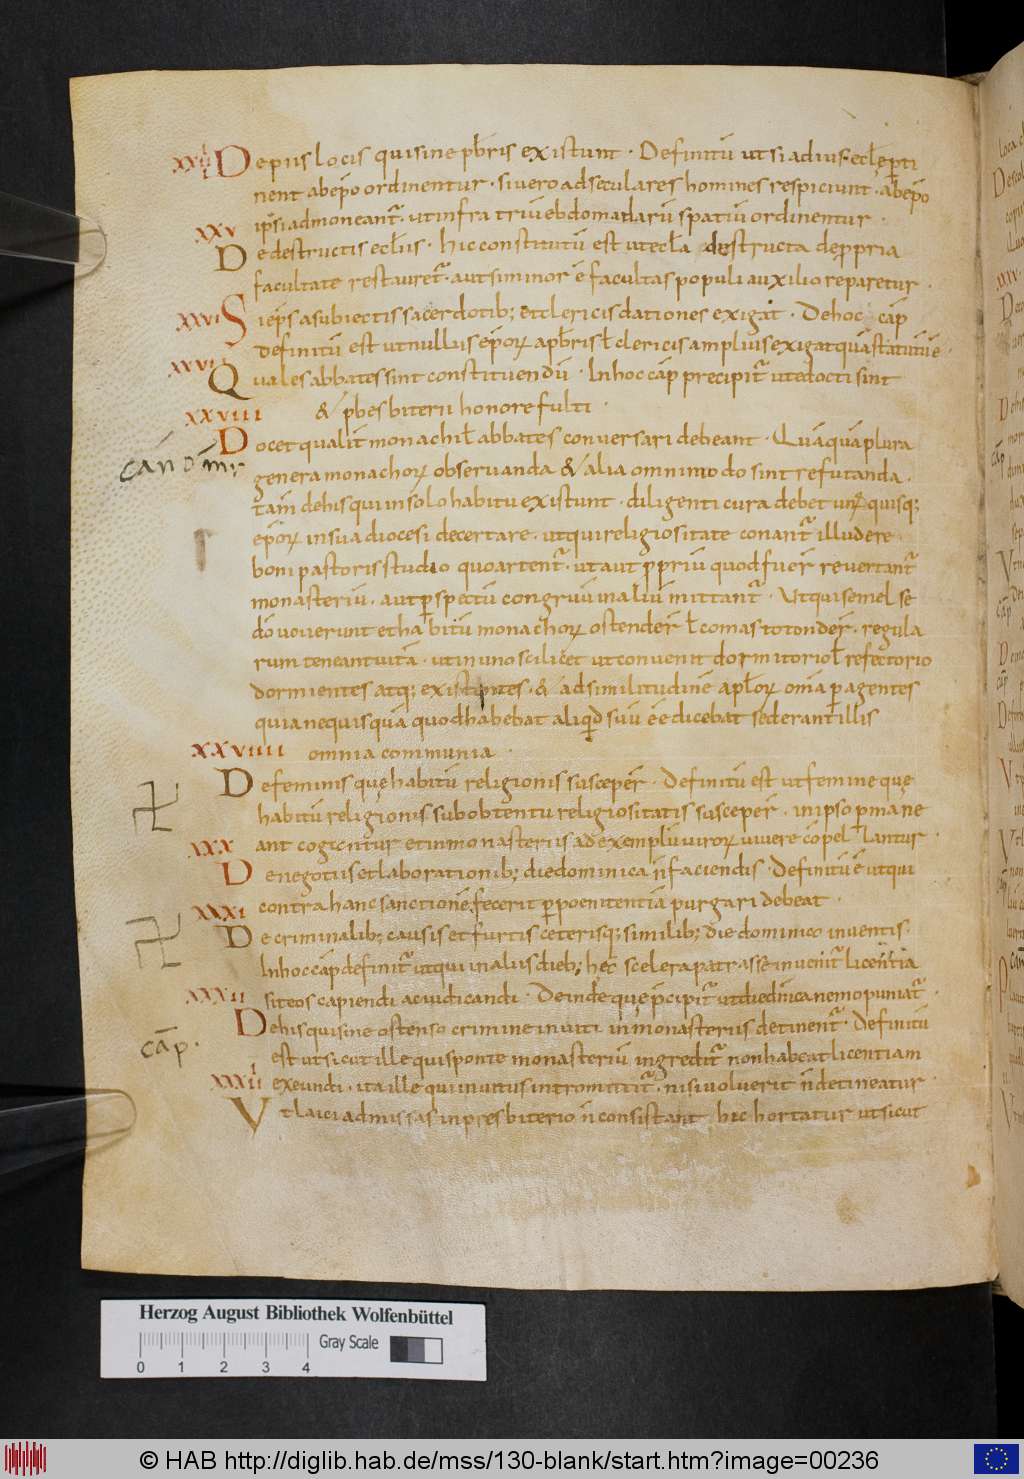 XXIIII Depiis locis qui sine pƀris existunt · Definitū ut si ad ius eccłe ꝑti
nent ab epō ordinentur · si vero ad seculares homines respiciunt · ab epō
ipsi admoneant᷑ · ut infra triū ebdomadarū spatiū ordinentur ·
XXV
De destructis ecłiis · hic constitutū est ut ecła destructa de ꝓpria
facultate restauret᷑ · aut si minor ē facultas populi auxilio reparetur ·
XXVI Si ep̄s a subiectis sacerdotib; et clericis dationes exigat · De hoc cap̄
definitū est ut nullus ep̄oꝝ a pƀris ł clericis amplius exigat quā statutū ē ·
XXVII
Quales abbates sint constituendū · In hoc cap̄ precipit᷑ ut edocti sint
XXVIII & p̄besbiterii honore fulti ·
Docet qualit̄ monachi ł abbates conversari debeant · Quāquā plura
canō mr̄
genera monachoꝝ observanda & alia omnimodo sint refutanda ·
tam̄ de his qui in solo habitu existunt · diligenti cura debet unusquisq;
ep̄oꝝ in sua diocesi decertare · ut qui religiositate conant᷑ illudere
boni pastoris studio quoartent᷑ · ut aut ꝓpriū quod fuer̄ revertant᷑
monasteriū · aut ꝑspectū congruū in aliū mittant᷑ · Ut qui semel se
dō voverunt et habitū monachoꝝ ostender̄ ł comas totonder̄ · regula
rum teneant vitā · ut in uno scilicet ut convenit dormitorio ł refectorio
dormientes atq; existentes · & ad similitudinē apłoꝝ om̄ia ꝑagentes
quia nequisquā quod habebat aliqid suū eē dicebat sed erant illis
XXVIIII omnia communia ·
De feminis quę habitū religionis susceper̄ · Definitū est ut femine quę
habitū religionis sub obtentu religiositatis susceper̄ · in ipso ꝑmane
ant cogentur et in monasteriis ad exemplū viroꝝ vivere cōpellantur ·
XXX
De negotiis et laborationib; die dominica n̄ faciendis · Definitū ē ut qui
contra hanc sanctionē fecerit ꝑ poenitentiā purgari debeat ·
XXXI
De criminalib; causis et furtis ceterisq; similib; die dominico inventis ·
In hoc cap̄ definit᷑ ut qui in aliis dieb; hęc scelera patrasse invenit᷑ licentia
XXXII sit eos capiendi ac iudicandi · Deinde quę p̄cipit᷑ ut die dn̄ica nemo puniat᷑ ·
De his qui sine ostenso crimine inviti in monasteriis detinent᷑ · Definitū
cap̄ ·
est ut sicut ille qui sponte monasteriū ingredit᷑ non habeat licentiam
XXXIII exeundi · ita ille qui invitus intromittit᷑ · nisi voluerit n̄ detineatur ·
Ut laici ad missas in presbiterio n̄ consistant hic hortatur ut sicut
Herzog August Bibliothek Wolfenbüttel
Gray Scale
0 1 2 3 4
© HAB http://diglib.hab.de/mss/130-blank/start.htm?image=00236